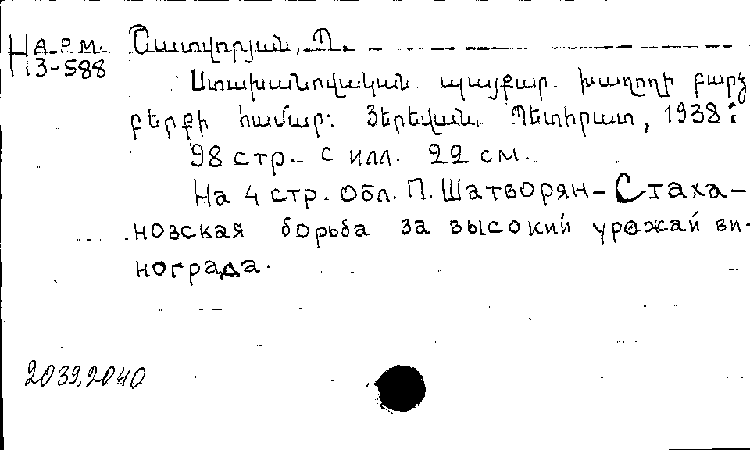 На.р.м. Շատվորյան, Պ.
13-588
Ստախանովական պայքար խաղողի բարձր
բերքի համար: Յերեվան, Պետհրատ, 1938:
98 стр. с илл. 22 см.
На 4 стр. обл. П. Шатворян - Стаха-
новская борьба за высокий урожай ви-
нограда.
2039,2040